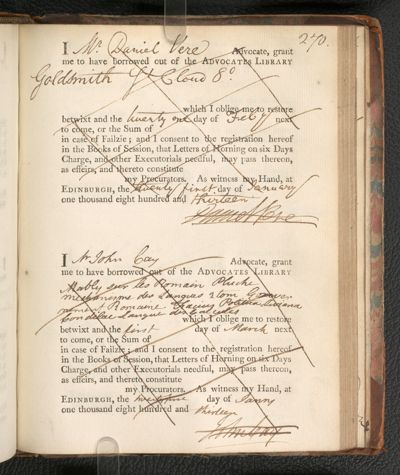 270.
I Mr. Daniel Vere Advocate, grant
me to have borrowed out of the ADVOCATES LIBRARY
Goldsmith St Cloud 8o
which I oblige me to restore
betwixt and the twenty one day of Feby next
to come, or the Sum of
in case of Failzie; and I consent to the registration hereof
in the Books of Session, that Letters of Horning on six Days
Charge, and other Executorials needful, may pass thereon,
as effeirs, and thereto constitute
my Procurators. As witness my Hand, at
EDINBURGH, the twenty first day of January
one thousand eight hundred and thirteen
I Mr John Cay Advocate, grant
me to have borrowed out of the ADVOCATES LIBRARY
Mably sur les Romain Pluche
mechanisme des Langues
which I oblige me to restore
betwixt and the first day of March next
to come, or the Sum of
in case of Failzie; and I consent to the registration hereof
in the Books of Session, that Letters of Horning on six Days
Charge, and other Executorials needful, may pass thereon,
as effeirs, and thereto constitute
my Procurators. As witness my Hand, at
EDINBURGH, the day of Janry
one thousand eight hundred and thirteen
John Cay